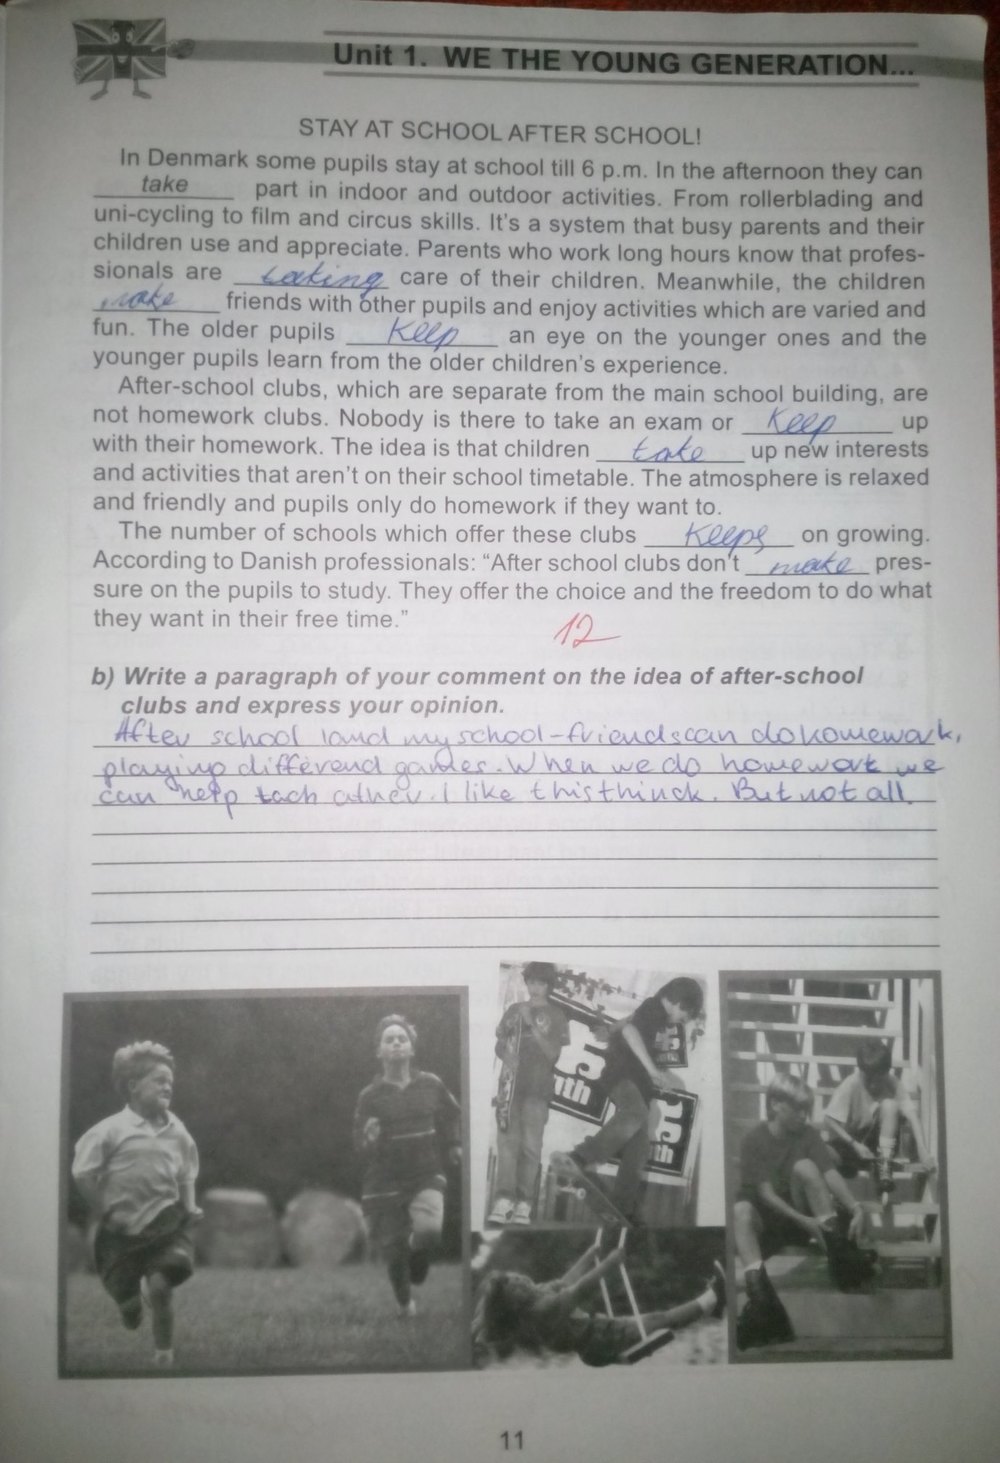 Unit 1. WE THE YOUNG GENERATION...
STAY AT SCHOOL AFTER SCHOOL!
In Denmark some pupils stay at school till 6 p.m. In the afternoon they can
take part in indoor and outdoor activities. From rollerblading and
uni-cycling to film and circus skills. It's a system that busy parents and their
children use and appreciate. Parents who work long hours know that profes-
sionals are taking care of their children. Meanwhile, the children
make friends with other pupils and enjoy activities which are varied and
fun. The older pupils keep an eye on the younger ones and the
younger pupils learn from the older children's experience.
After-school clubs, which are separate from the main school building, are
not homework clubs. Nobody is there to take an exam or keep up
with their homework. The idea is that children take up new interests
and activities that aren't on their school timetable. The atmosphere is relaxed
and friendly and pupils only do homework if they want to.
The number of schools which offer these clubs keeps on growing.
According to Danish professionals: "After school clubs don't make pres-
sure on the pupils to study. They offer the choice and the freedom to do what
they want in their free time."
12
b) Write a paragraph of your comment on the idea of after-school
clubs and express your opinion.
After school I and my school-friends can do homework,
playing differend games. When we do homework we
can help each other. I like this thinck. But not all.
11